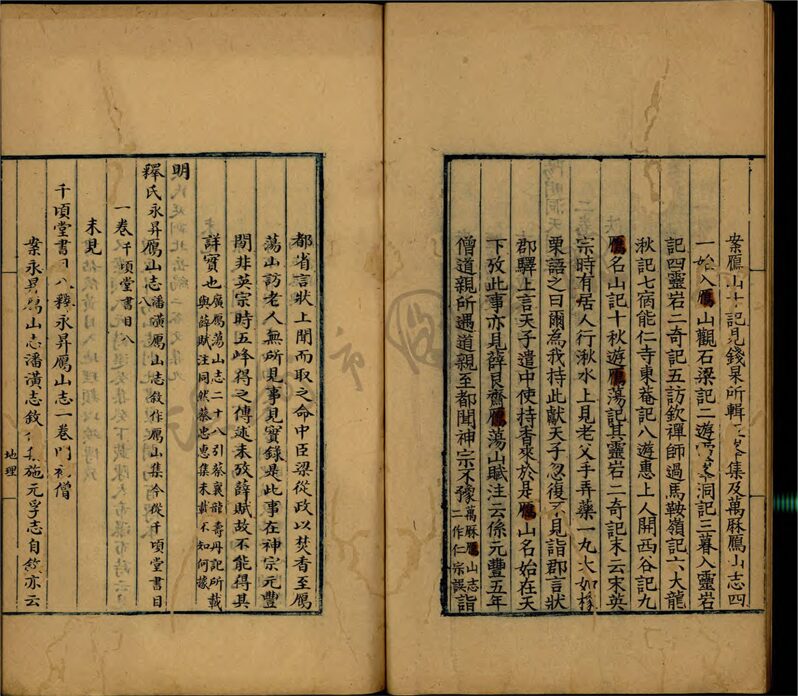 案鴈山十記見錢杲所輯集及萬厤鴈山志四
一始入鴈山觀石梁記二遊靈峯洞記三暮入靈岩
記四靈岩二奇記五訪欽禪師過馬鞍嶺記六大龍
湫記七宿能仁寺東菴記八遊惠上人開西谷記九
鴈名山記十秋遊鴈蕩記其靈岩二奇記末云宋英
宗時有居人行湫水上見老父手弄藥一丸大如椽
栗語之曰爾為我持此獻天子忽復不見詣郡言狀
郡驛上言天子遣中使持香來於是鴈山名始在天
下攷此事亦見薛艮齋鴈蕩山賦注云係元豐五年
僧道親所遇道親至都聞神宗不豫萬厤鴈山志二作仁宗誤詣
都省言狀上聞而取之命中臣梁從政以焚香至鴈
蕩山訪老人無所見事見實錄是此事在神宗元豐
閒非英宗時五峰得之傳述未攷薛賦故不能得其
詳實也廣鴈蕩山志二十八引蔡襄龍壽丹記所載與薛賦注同然蔡忠惠集未載不知何據
明
釋氏永昇鴈山志潘潢鴈山志敘作鴈山集今從千頃堂書目八
一卷千頃堂書目八
未見
千頃堂書目八釋永昇鴈山志一卷門初僧
案永昇鴈山志潘潢志敘集施元孚志自敘亦云
地理